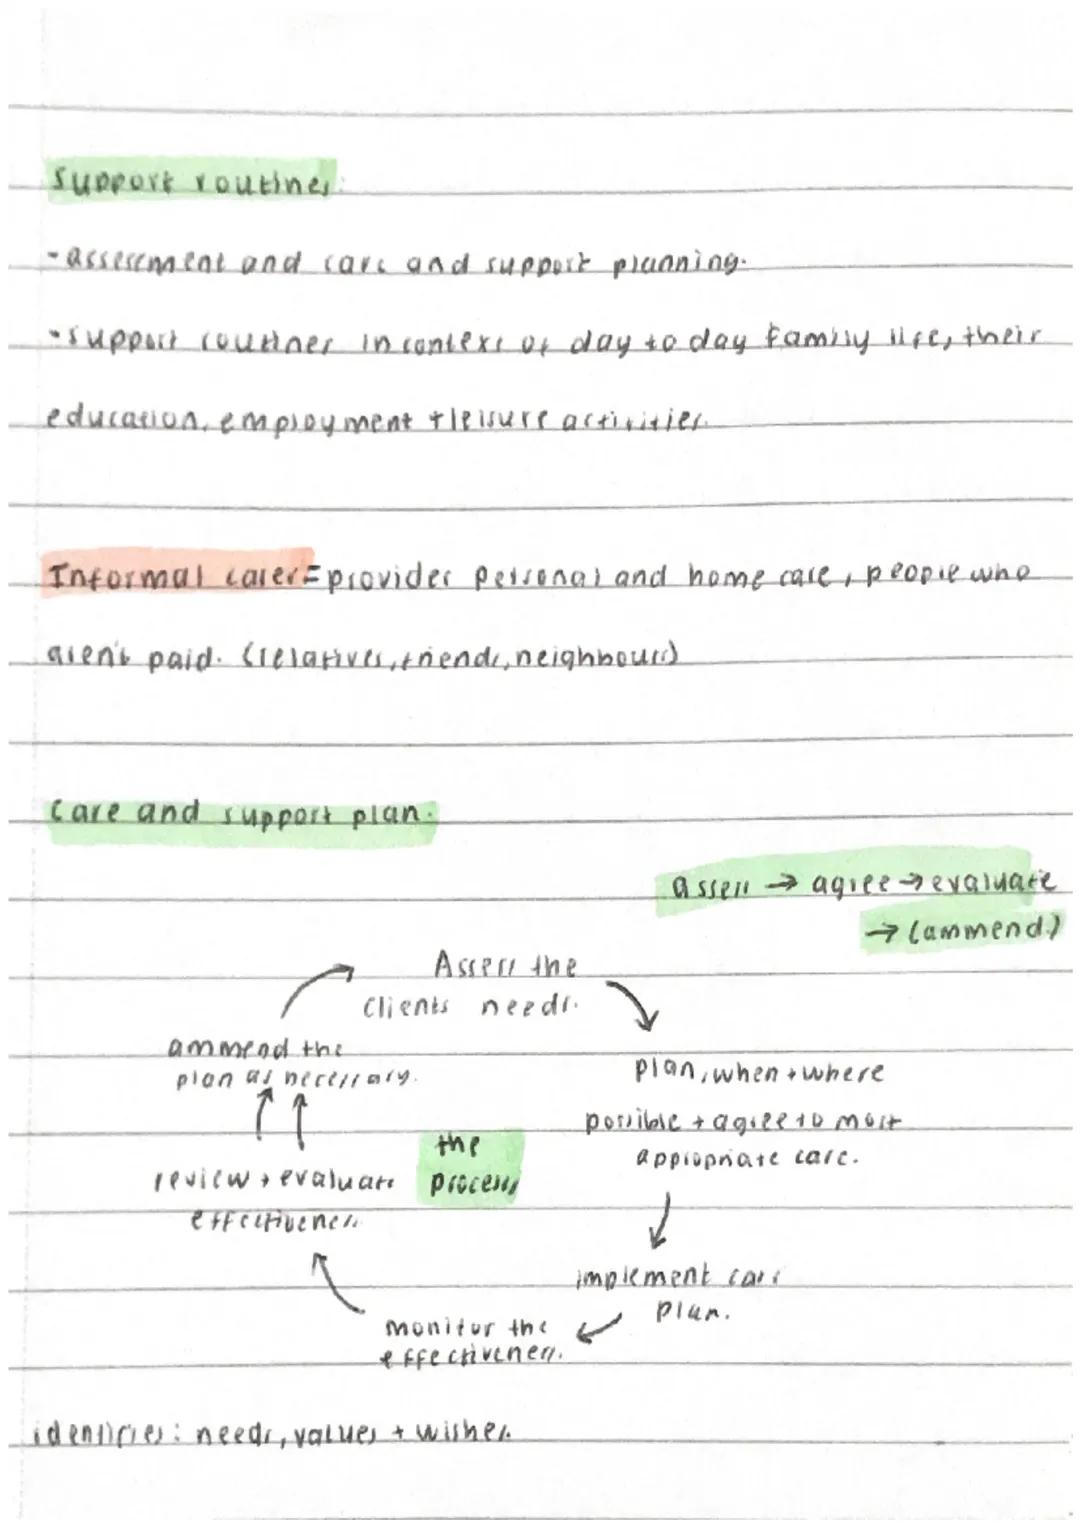 Support routines.
-assessment and care and support planning.
-support routines in context of day to day family life, their
education, employment + leisure activities.
Informal carer = provides personal and home care, people who
aren't paid. (relatives, friends, neighbours)
Care and support plan.
assess → agree → evaluate
→ (ammend)
Assess the
clients needs.
plan, when + where
possible + agree to most
appropriate care.
implement care
plan.
monitor the
effectiveness.
review + evaluate
effectiveness.
ammend the
plan as necessary.
the
process
identifies: needs, values + wishes.